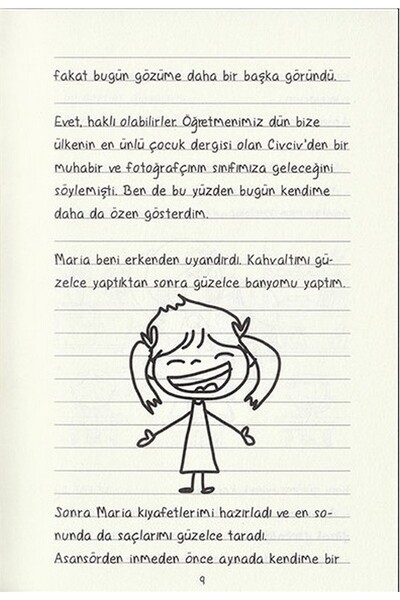 fakat bugün gözüme daha bir başka göründü.
Evet, haklı olabilirler. Öğretmenimiz dün bize
ülkenin en ünlü çocuk dergisi olan Civciv'den bir
muhabir ve fotoğrafçının sınıfımıza geleceğini
söylemişti. Ben de bu yüzden bugün kendime
daha da özen gösterdim.
Maria beni erkenden uyandırdı. Kahvaltımı gü-
zelce yaptıktan sonra güzelce banyomu yaptım.
Sonra Maria kıyafetlerimi hazırladı ve en so-
nunda da saçlarımı güzelce taradı.
Asansörden inmeden önce aynada kendime bir
9